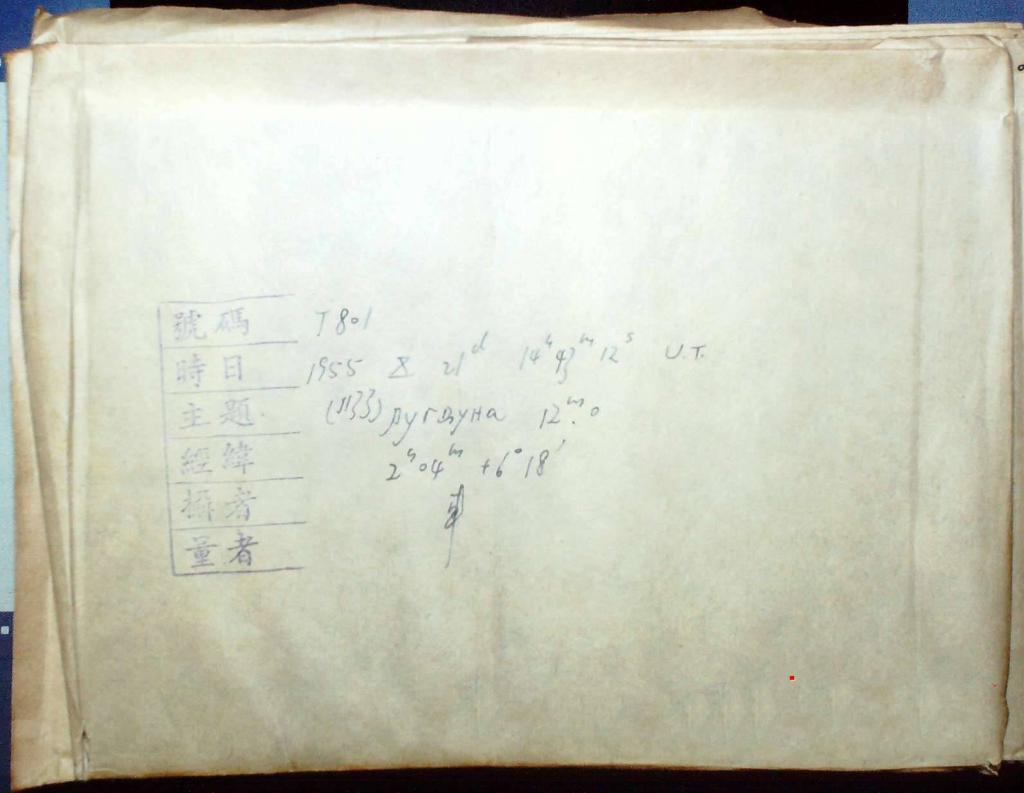 號碼 T 801
時日 1955 X 21ᵈ 14ʰ 43ᵐ 12ˢ U.T.
主題 (1133) Лугдуна 12ᵐ.0
經緯 2ʰ 04ᵐ +6° 18′
攝者
量者